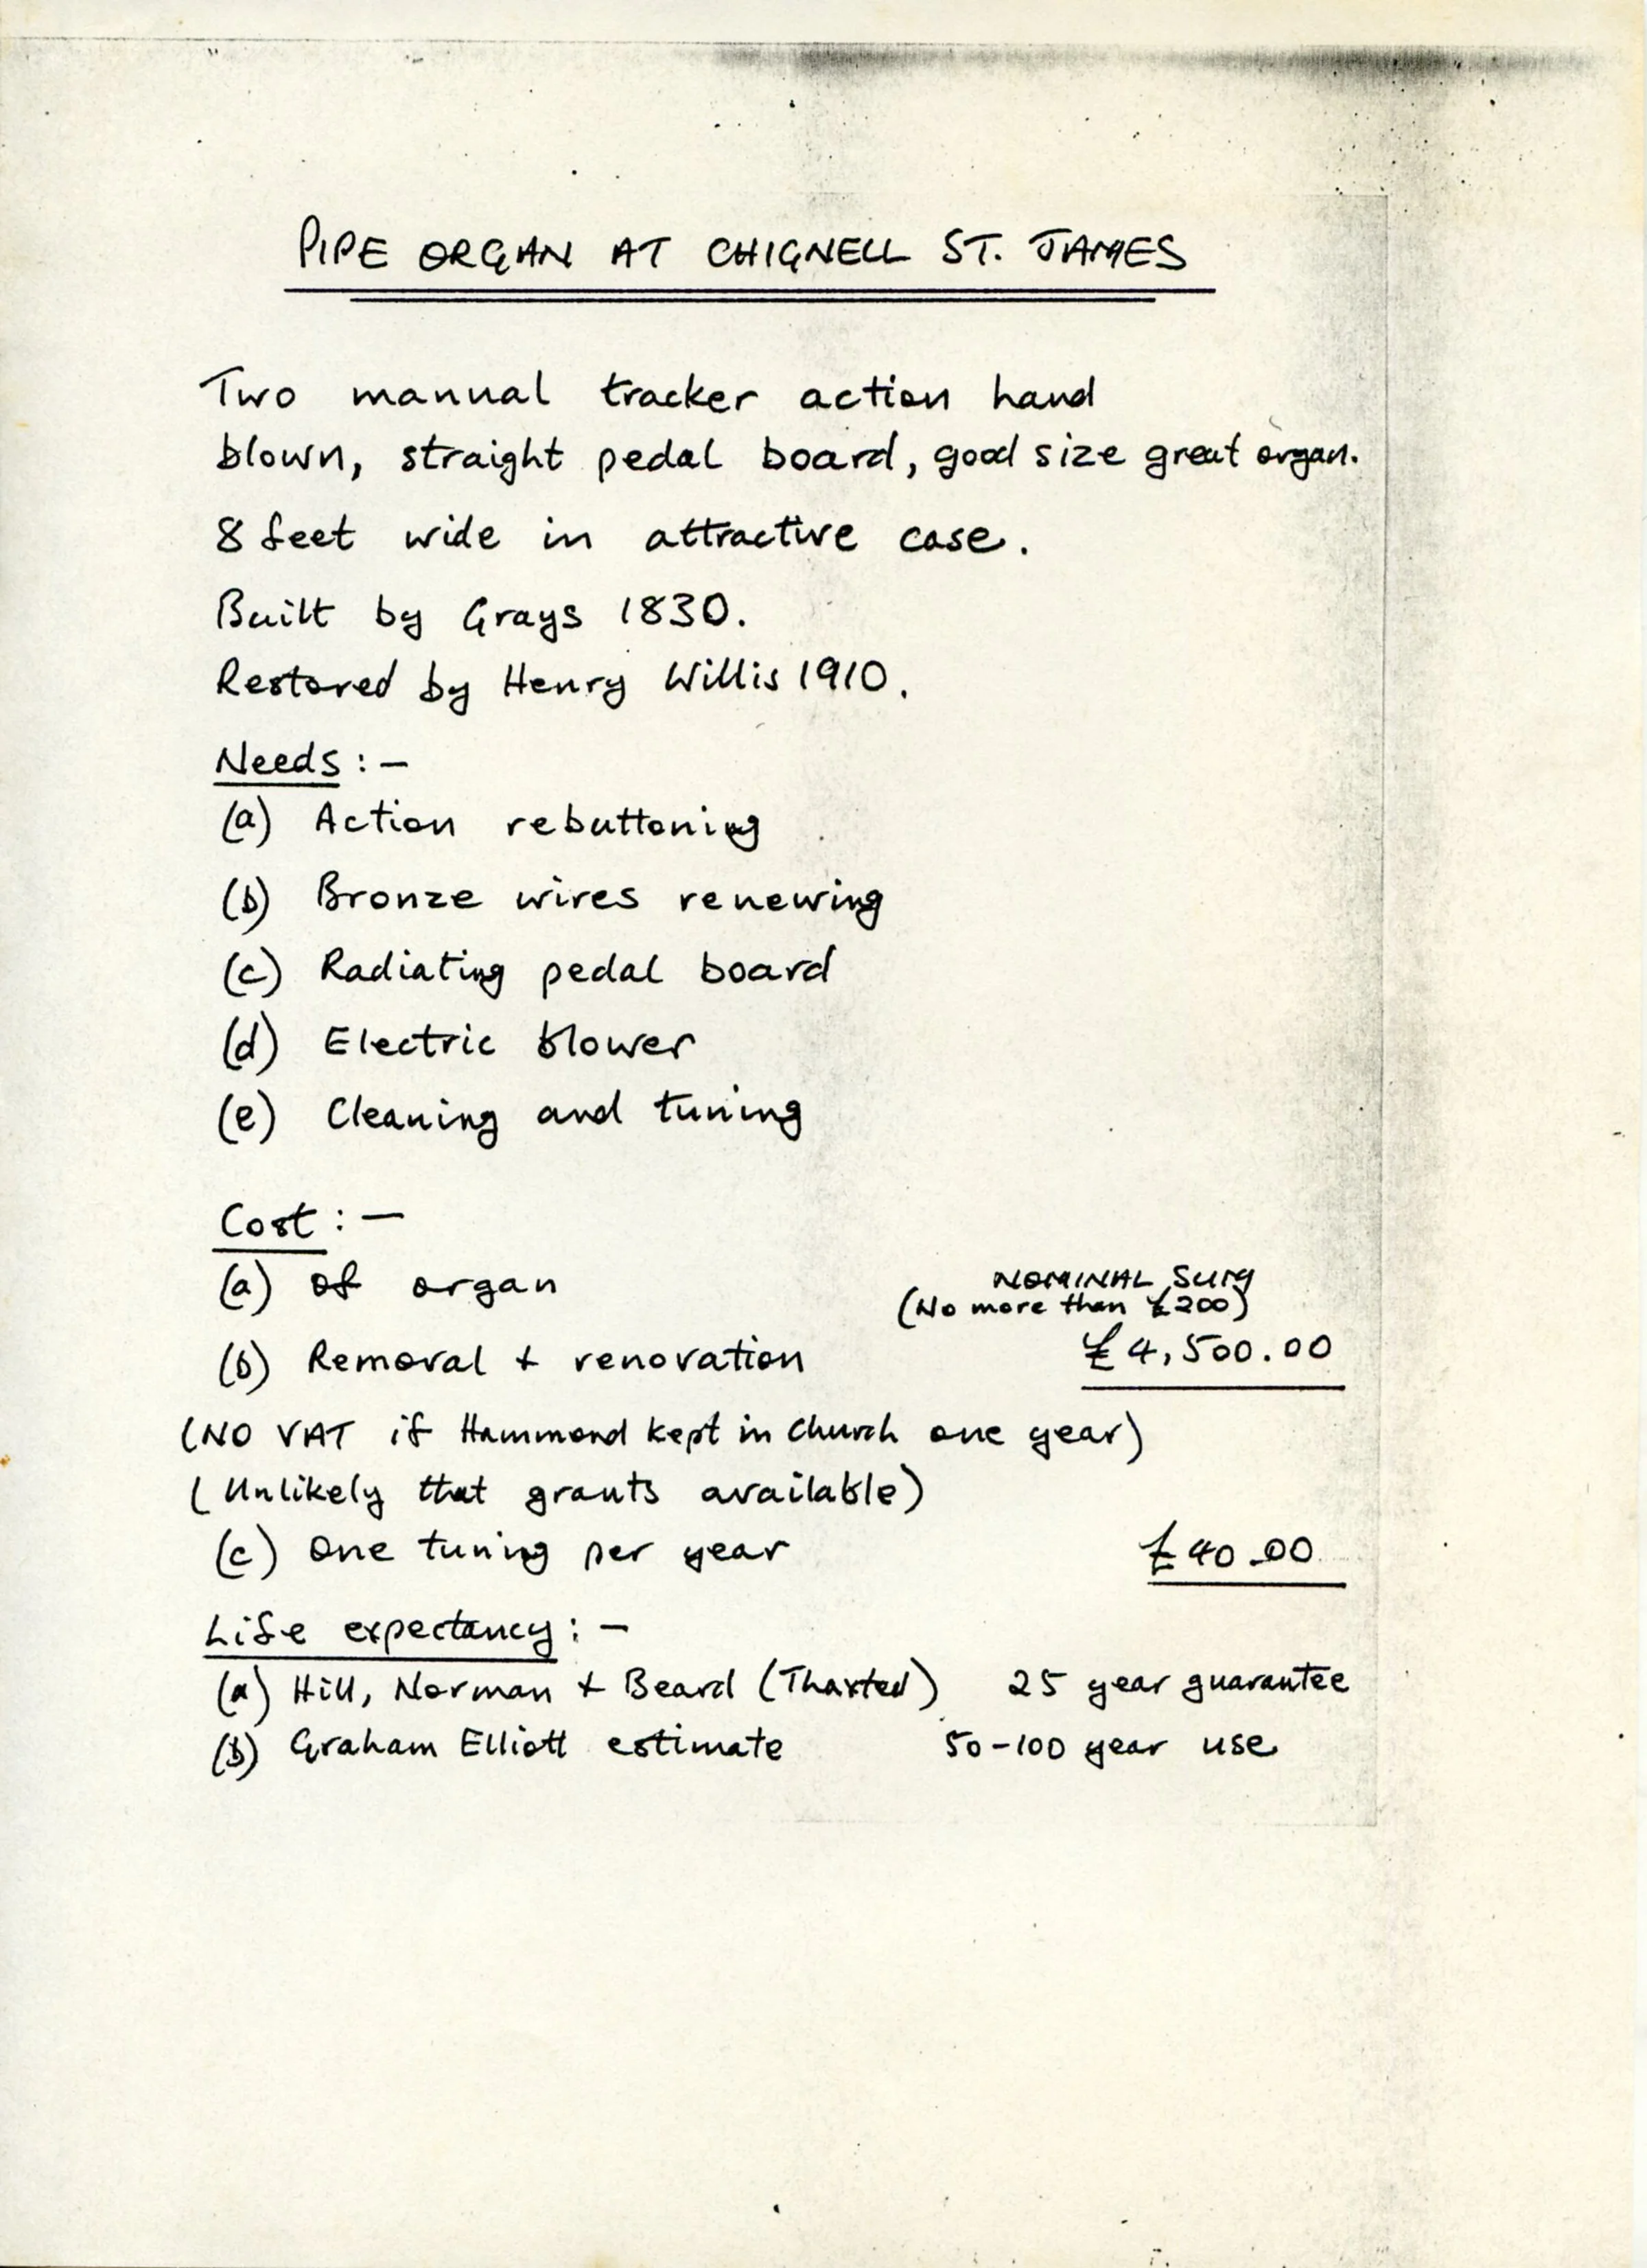 PIPE ORGAN AT CHIGNELL ST. JAMES
Two manual tracker action hand
blown, straight pedal board, good size great organ.
8 feet wide in attractive case.
Built by Grays 1830.
Restored by Henry Willis 1910.
Needs :-
(a) Action rebuttoning
(b) Bronze wires renewing
(c) Radiating pedal board
(d) Electric blower
(e) Cleaning and tuning
Cost :-
(a) of organ NOMINAL SUM
(No more than £200)
(b) Removal + renovation £4,500.00
(NO VAT if Hammond kept in Church one year)
(Unlikely that grants available)
(c) One tuning per year £40.00
Life expectancy :-
(a) Hill, Norman + Beard (Thaxted) 25 year guarantee
(b) Graham Elliott estimate 50-100 year use